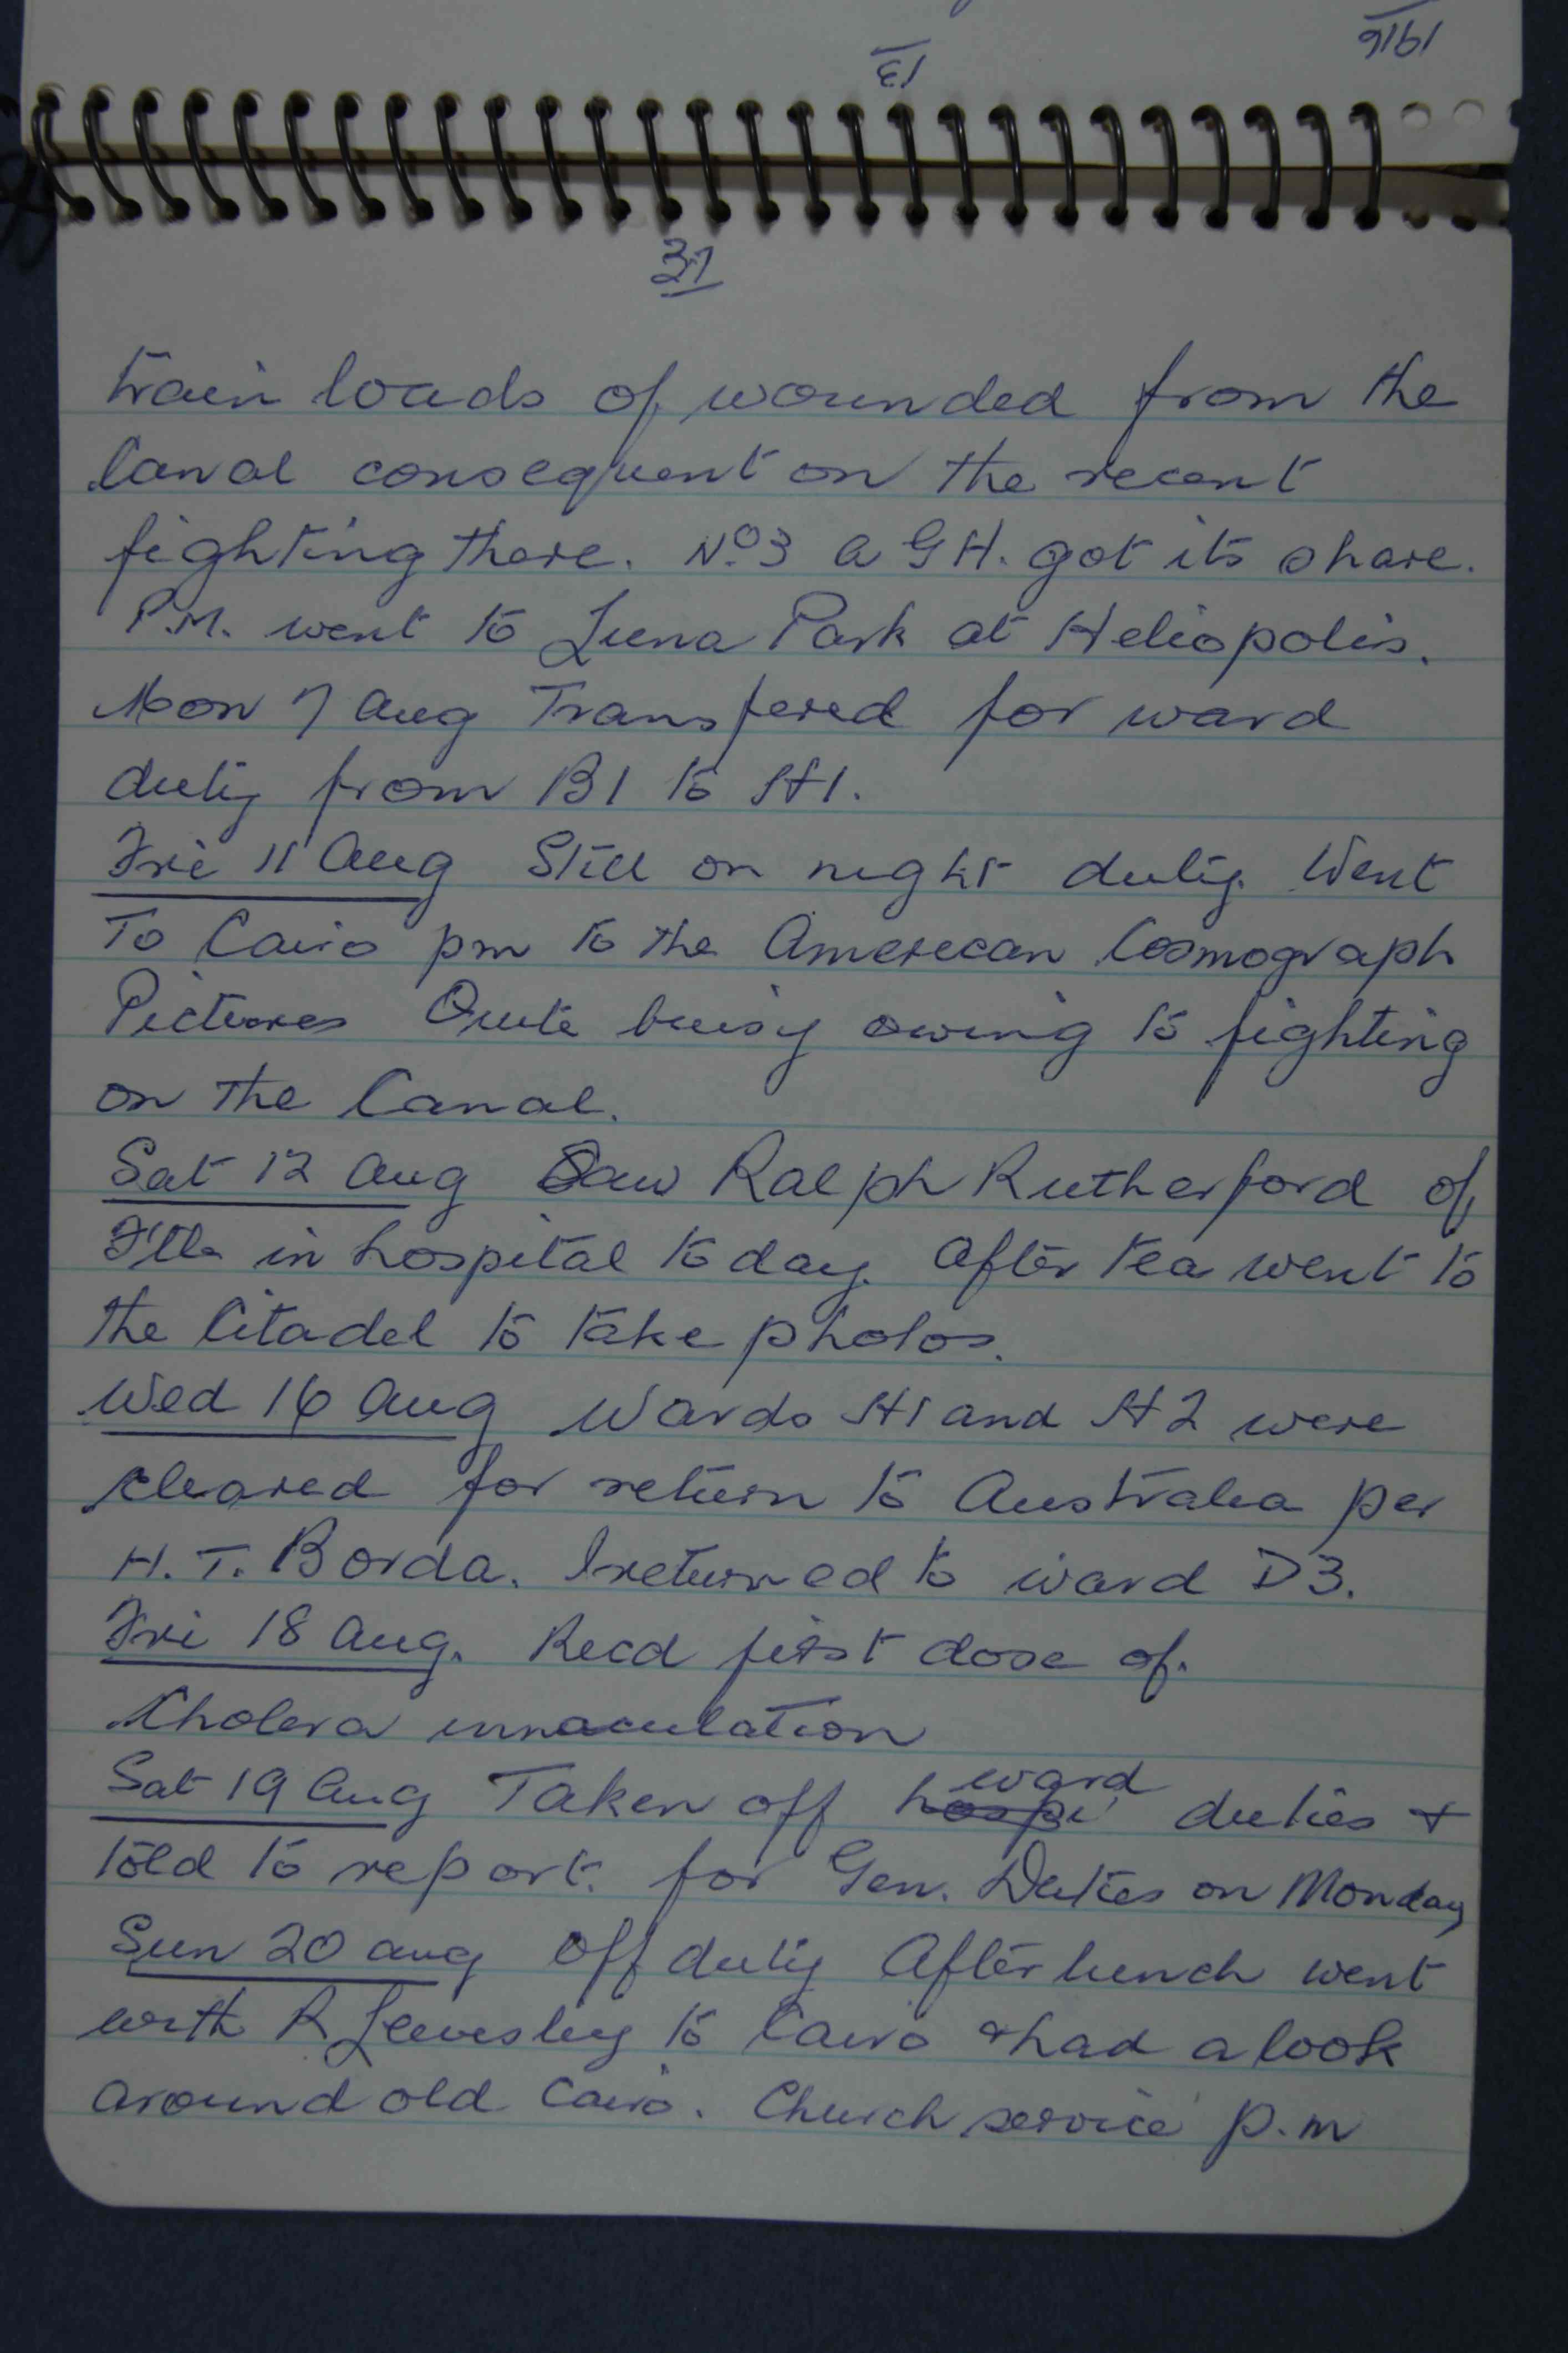 1916
13
31
train loads of wounded from the
Canal consequent on the recent
fighting there. No. 3 A G H. got its share.
P.M. went to Luna Park at Heliopolis.
Mon 7 Aug Transfered for ward
duty from B1 to H1.
Fri 11 Aug Still on night duty. Went
To Cairo pm to the Amerecan Cosmograph
Pictures Quite buisy owing to fighting
on the Canal.
Sat 12 Aug Saw Ralph Rutherford of
in hospital to day. After tea went to
the Citadel to take photos.
Wed 16 Aug Wards H1 and H2 were
cleared for return to Australia per
H.T. Borda. I returned to ward D3.
Fri 18 Aug. Recd first dose of.
Cholera innaculation
Sat 19 Aug Taken off hospi ward duties +
told to report. for Gen. Duties on Monday
Sun 20 Aug Off duty After lunch went
with R Leevesley to Cairo + had a look
around old Cairo. Church service p.m